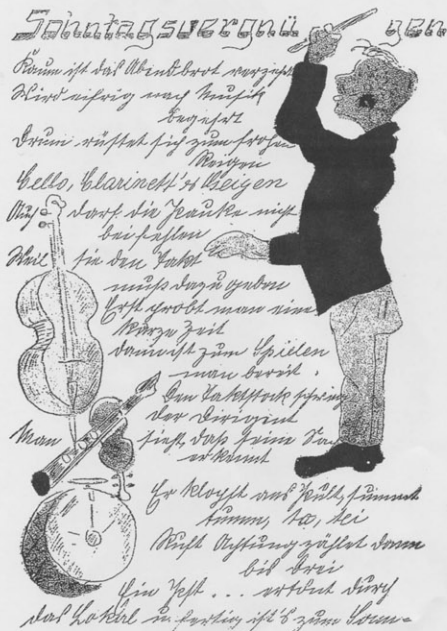 Sonntagsvergnügen
Kaum ist das Abendbrot verzehrt
Wird eifrig nach Musik
begehrt
Drum rüstet sich zum frohen
Reigen
Cello, Clarinett's & Geigen
Auch darf die Pauke nicht
beifehlen
Weil sie den Takt
muß dazu geben
Erst probt man eine
kurze Zeit
dann ist zum Spielen
man bereit.
Den Taktstock schwingt
der Dirigent
Man sieht, daß seine
er kennt
Er klopft ans Pult, summt
tumm, ta, tei
Ruft Achtung zählet dann
bis drei
Ein Pst ... ertönt durch
das Lokal u. fertig ist's zum